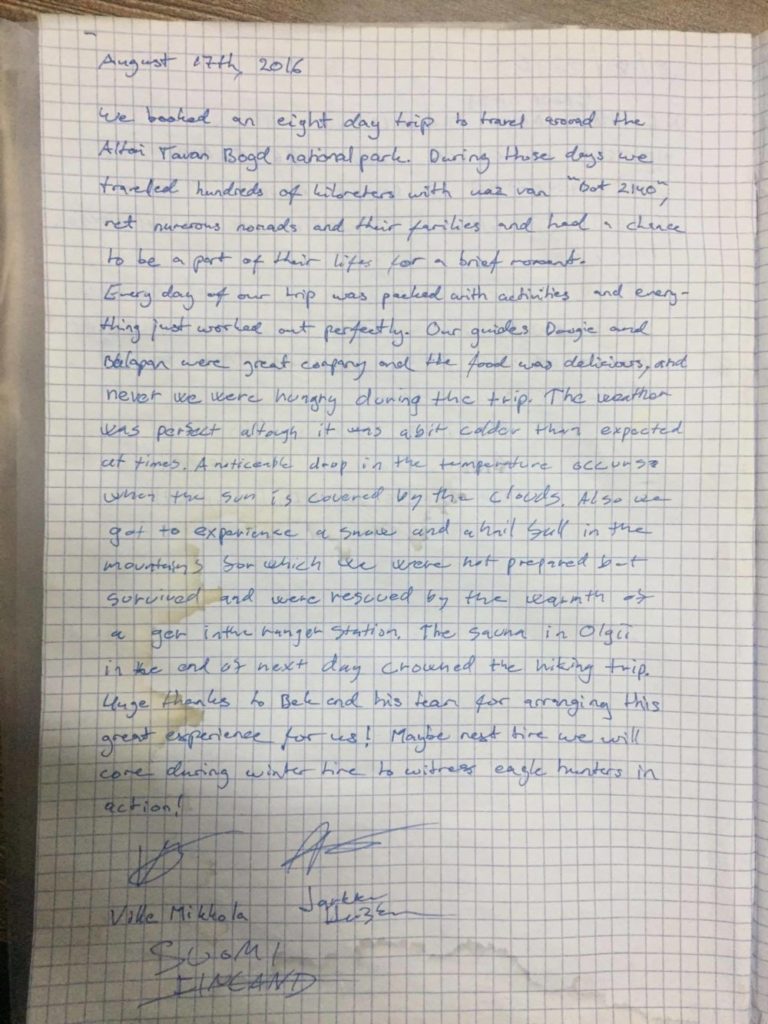 August 17th, 2016
We booked an eight day trip to travel around the
Altai Tavan Bogd nationalpark. During those days we
traveled hundreds of kilometers with uaz van "Bat 2140",
met numerous nomads and their families and had a chance
to be a part of their lifes for a brief moment.
Every day of our trip was packed with activities and every-
thing just worked out perfectly. Our guides Dougie and
Balapan were great company and the food was delicious, and
never we were hungry during the trip. The weather
was perfect altough it was a bit colder than expected
at times. A noticeable drop in the temperature occurs
when the sun is covered by the clouds. Also we
got to experience a snow and a hail fall in the
mountains for which we were not prepared but
survived and were rescued by the warmth of
a ger in the ranger station. The sauna in Olgii
in the end of next day crowned the hiking trip.
Huge thanks to Bek and his team for arranging this
great experience for us! Maybe next time we will
come during winter time to witness eagle hunters in
action!
Ville Mikkola Jarkko
SUOMI
FINLAND